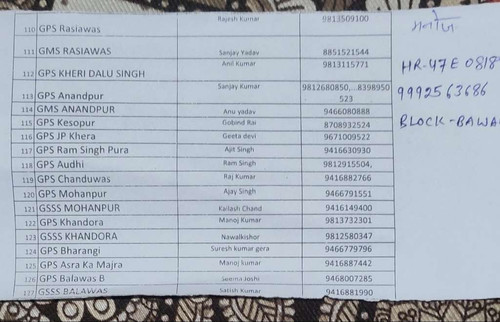 110 GPS Rasiawas Rajesh Kumar 9813509100
111 GMS RASIAWAS Sanjay Yadav 8851521544
112 GPS KHERI DALU SINGH Anil Kumar 9813115771
113 GPS Anandpur Sanjay Kumar 9812680850,...8398950
523
114 GMS ANANDPUR Anu yadav 9466080888
115 GPS Kesopur Gobind Rai 8708932524
116 GPS JP Khera Geeta devi 9671009522
117 GPS Ram Singh Pura Ajit Singh 9416630930
118 GPS Audhi Ram Singh 9812915504,
119 GPS Chanduwas Raj Kumar 9416882766
120 GPS Mohanpur Ajay Singh 9466791551
121 GSSS MOHANPUR Kailash Chand 9416149400
122 GPS Khandora Manoj Kumar 9813732301
123 GSSS KHANDORA Nawalkishor 9812580347
124 GPS Bharangi Suresh kumar gera 9466779796
125 GPS Asra Ka Majra Manoj kumar 9416887442
126 GPS Balawas B Joshi 9468007285
127 GSSS BALAWAS Satish Kumar 9416881990
HR-47E 0818
9992563686
BLOCK-BAWA